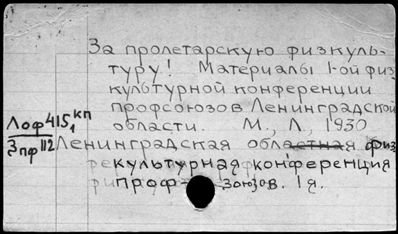 За пролетарскую физкуль-
туру! Материалы 1-ой физ
культурной конференции
профсоюзов Ленинградской
области. М., Л., 1930
Лоф 415 кп
1
Зпф 112
Ленинградская областная физ
культурная конференция
проф зоюзов. 1я.